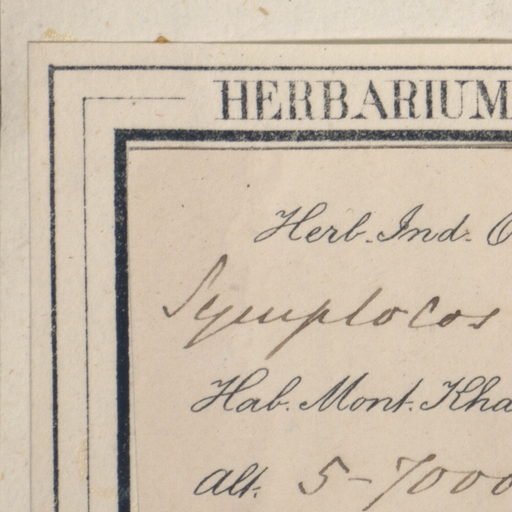 HERBARIUM
Herb. Ind. O
Symplocos
Hab. Mont. Kha
Alt. 5-7000